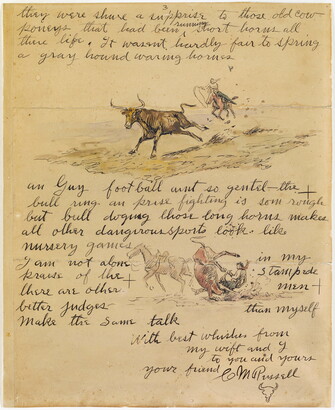 they were shure a suprise to those old cow
poneys that had been running short horns all
there life. It wasent hardly fair to spring
a gray hound waring hornes
an Guy foot ball aint so gentel — the
bull ring an prise fighting is som rough
but bull doging those long horns makes
all other dangerous sports look like
nursery games
I am not alone in my
praise of the Stampede
there are other men
better judges than myself
make the same talk
With best whishes from
my wife and I
to you and yours
your friend CM Russell